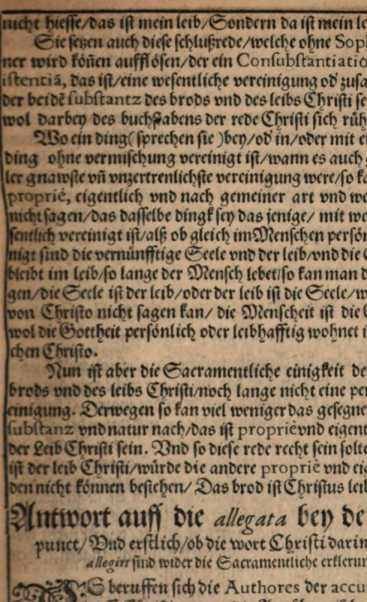 nicht hiesse/das ist mein leib/Sondern da ist mein le
Sie setzen auch diese schlußrede/welche ohne Sop
ner wird köñen aufflösen/der ein Consubstantiatio
istentiā, das ist/eine wesentliche vereinigung od zusa
der beidē substantz des brods vnd des leibs Christi se
wol darbey des buchstabens der rede Christi sich rüh
Wo ein ding (sprechen sie) bey/od in/oder mit e
ding ohne vermischung vereinigt ist/wann es auch
ler gnawste vñ vnzertrenlichste vereinigung were/so k
propriè, eigentlich vnd nach gemeiner art vnd we
nicht sagen/das dasselbe dingk sey das jenige/ mit we
sentlich vereinigt ist/alß ob gleich im Menschen persön
nigt sind die vernünfftige Seele vnd der leib/vnd die
bleibt im leib/so lange der Mensch lebet/so kan man d
gen/die Seele ist der leib/oder der leib ist die Seele/w
von Christo nicht sagen kan/ die Menscheit ist die
wol die Gottheit persönlich oder leibhafftig wohnet i
chen Christo.
Nun ist aber die Sacramentliche einigkeit de
brods vnd des leibs Christi/noch lange nicht eine per
einigung. Derwegen so kan viel weniger das gesegne
substanz vnd natur nach/das ist propriè vnd eigent
der Leib Christi sein. Vnd so diese rede recht sein solte
ist der leib Christi/würde die andere propriè vnd eig
den nicht können bestehen/ Das brod ist Christus leib
Antwort auff die allegata bey de
punct/ Vnd erstlich/ob die wort Christi darin
allegirt sind wider die Sacramentliche erklerun
ES beruffen sich die Authores der accu